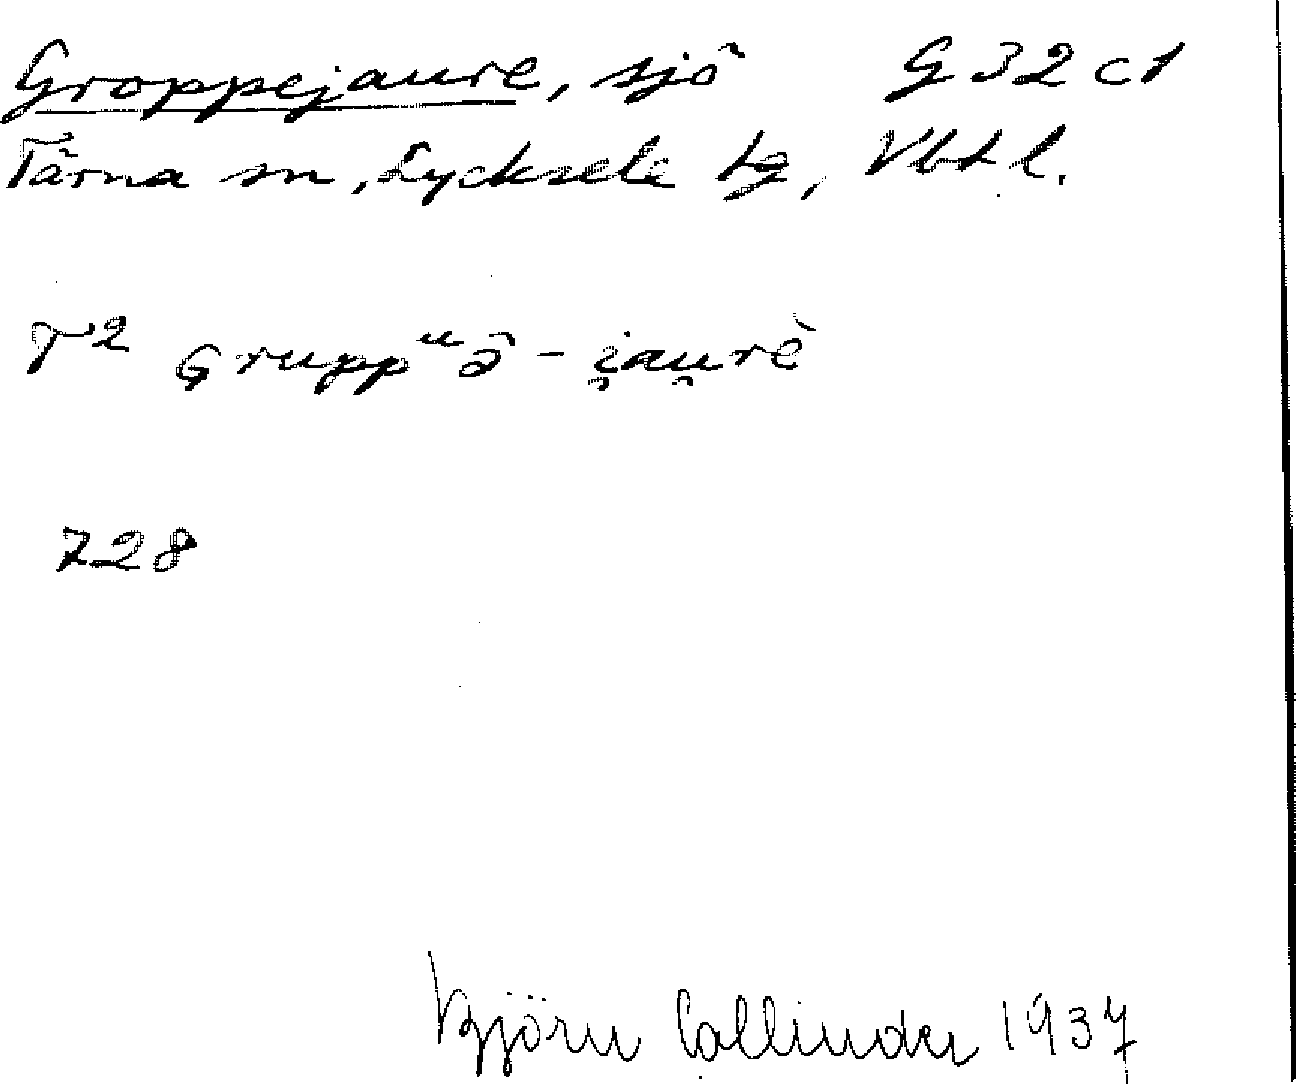 Groppejaure, sjö G 32 c1
Tärna sn, Lycksele tg, Vbt l.
T² Gruppᵘə̑ - i̯au̯rè
728
Björn Collinder 1937